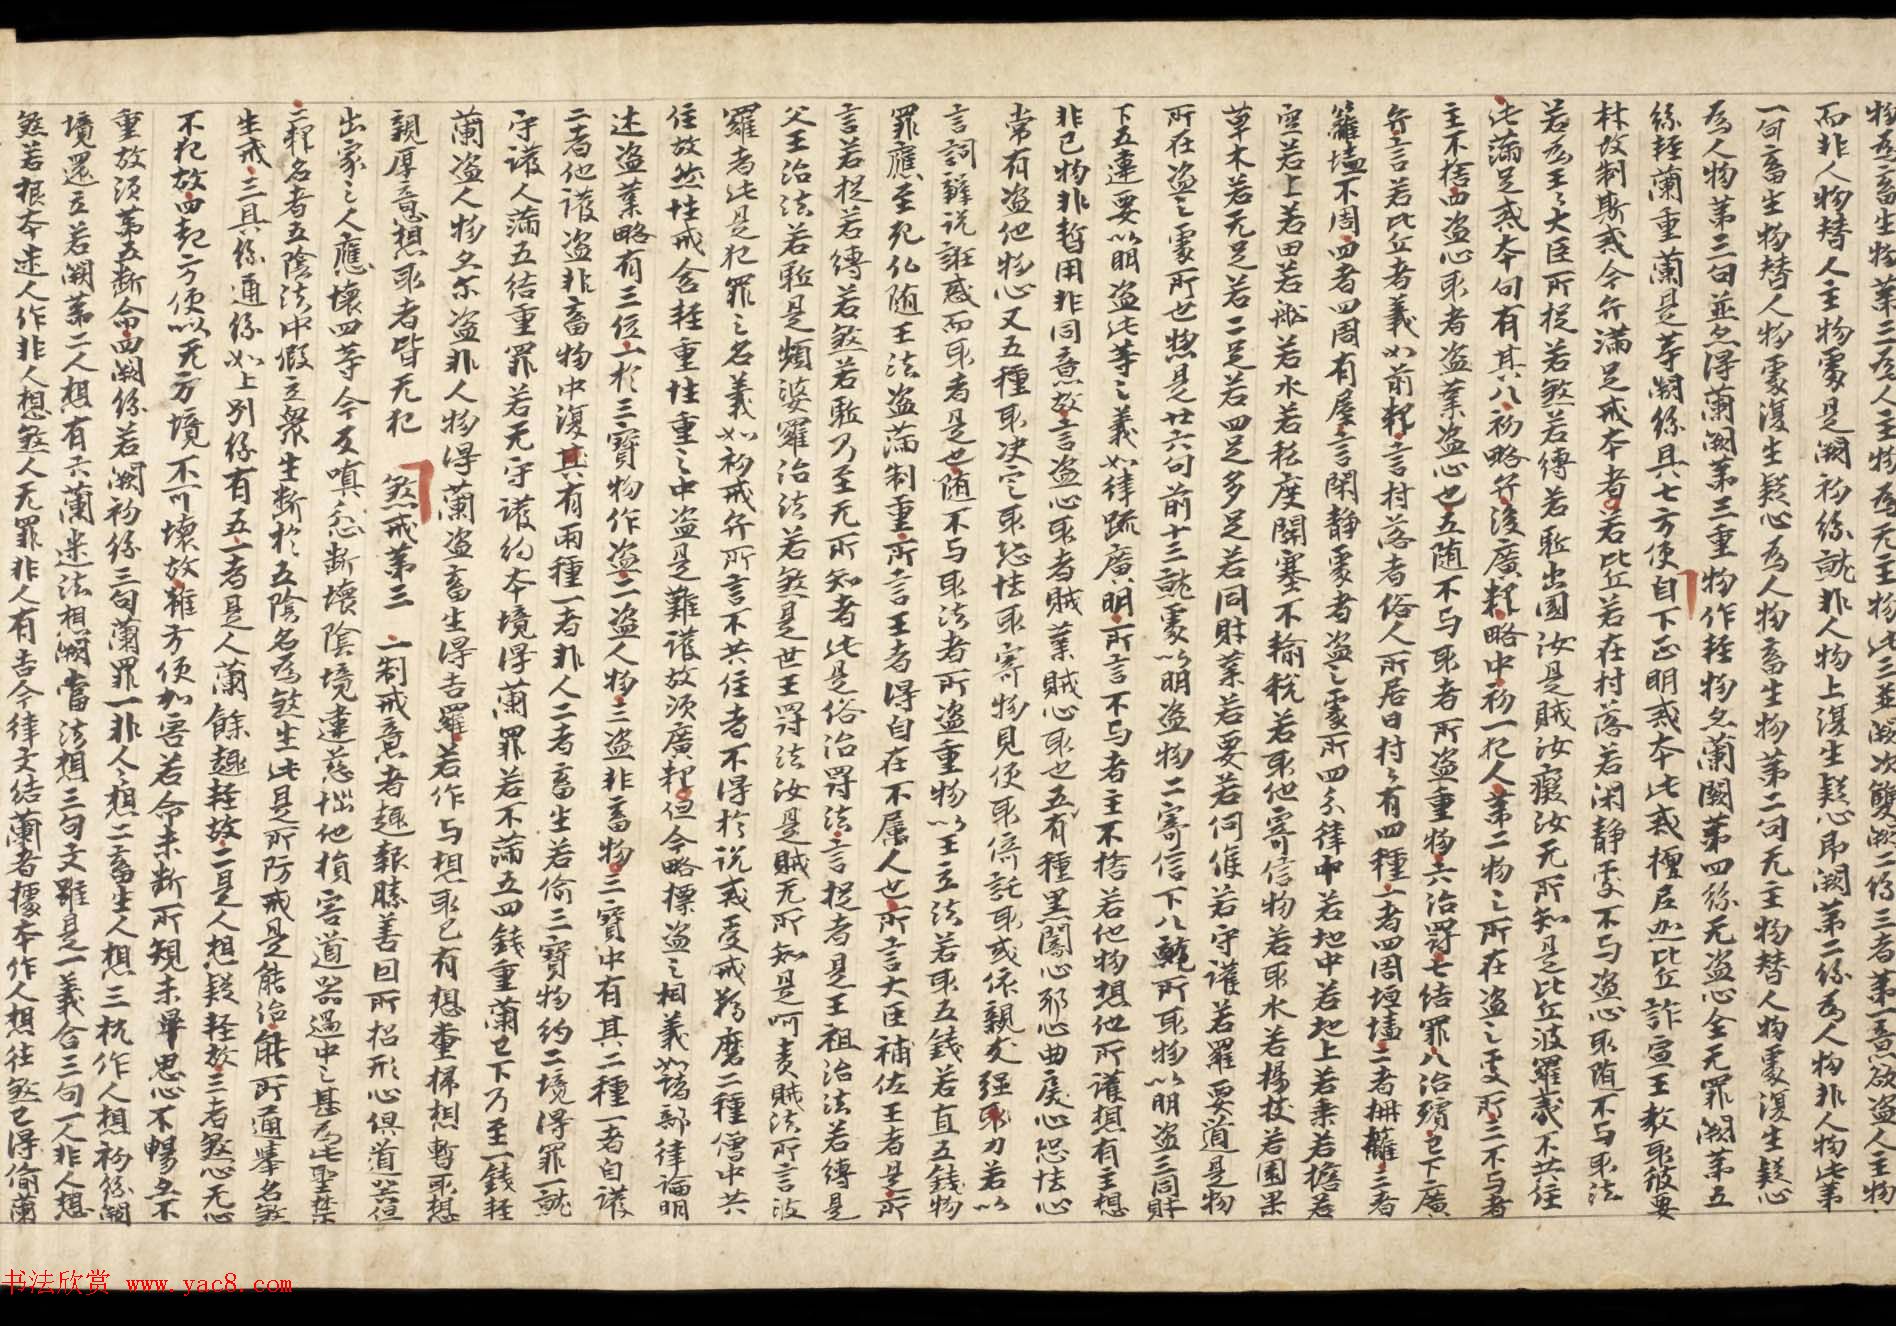 物為畜生物第二為人主物為无主物此三並漱次雙漱二缘三者第一意欲盗人主物
而非人物替人主物處是闕初缘就非人物上復生疑心即闕第二缘為人物非人物此第
一句畜生物替人物處復生疑心為人物畜生物第二句无主物替人物處復生疑心
為人物第三句並名得蘭闕第三重物作輕物名蘭闕第四缘无盗心全无罪闕第五
缘輕蘭重蘭是等闕缘具七方便自下正明戒本此戒檀尼迦比丘詐宣王教取彼要
林故制斯戒今弁滿足戒本者若比丘若在村落若闲静處不与盗心取随不与取法
若為王王大臣所捉若煞若縛若駈出國汝是賊汝癡汝无所知是比丘波羅夷不共住
此滿足戒本句有其八初略弁後廣釋略中初一犯人第二物之所在盗之處所三不与者
主不捨四盗心取者盗業盗心也五随不与取者所盗重物六治罸七结罪八治殯已下廣
弁言若比丘者義如前釋言村落者俗人所居曰村村有四種一者四周垣墻二者栅籬三者
籬墻不周四者四周有屋言閑静處者盗之處所四分律中若地中若地上若乘若擔若
空若上若田若船若水若私度關塞不輸税若取他寄信物若取水若楊枝若園果
草木若无足若二足若四足多足若同財業若要若伺候若守護若羅要道是物
所在盗之處所也物是廿六句前十三就處以明盗物二寄信下八就所取物以明盗三同財
下五連要以明盗此等之義如律疏廣明所言不与者主不捨若他物想他所護想有主想
非已物非暫用非同意故言盗心取者賊業賊心取也五有種黑闇心邪心曲戾心恐怯心
常有盗他物心又五種取决定取恐怯取寄物見便取倚託取或依親友强取力若以
言詞辯说誑惑而取者是也随不与取法者所盗重物以王立法若取五錢若直五錢物
罪應至死仏随王法盗滿制重所言王者得自在不属人也所言大臣補佐王者是所
言若捉若縛若煞若駈乃至无所知者此是俗治罸法言捉者是王祖治法若縛是
父王治法若駈是頻婆羅治法若煞是世王罸法汝是賊无所知是呵责賊法所言波
羅者此是犯罪之名義如初戒弁所言不共住者不得於说戒受戒羯磨二種僧中共
住故然性戒含輕重性重之中盗是難護故须廣釋但今略摽盗之相義如諸部律論明
述盗業略有三位一於三寶物作盗二盗人物三盗非畜物三寶中有其二種一者自護
二者他護盗非畜物中復其有兩種一者非人二者畜生若偷三寶物約二境得罪一就
守護人滿五结重罪若无守護約本境得蘭罪若不滿五四錢重蘭已下乃至一錢輕
蘭盗人物名尔盗非人物得蘭盗畜生得吉羅若作与想取已有想糞掃想暫取想
親厚意想取者皆无犯　煞戒第三　一制戒意者趣報勝善因所招形心俱道器但
出家之人應懷四等今反嗔忿断壞陰境違慈恼他損害道器過中之甚為此聖禁
二釋名者五陰法中假立衆生断於五陰名為煞生此是所防戒是能治能所通舉名煞
生戒三具缘通缘如上別缘有五一者是人蘭餘趣輕故二是人想疑輕故三者煞心无心
不犯故四起方便以无方境不可壞故雖方便加害若命未断所規未畢思心不暢名不
重故须第五断命四闕缘若闕初缘三句蘭罪一非人人想二畜生人想三杌作人想初缘闕
境還立若闕第二人想有六蘭迷法相闕當法想三句文雖是一義合三句一人非人想
煞若根本迷人作非人想煞人无罪非人有吉今律文结蘭者據本作人想往煞已得偷蘭
书法欣赏 www.yac8.com